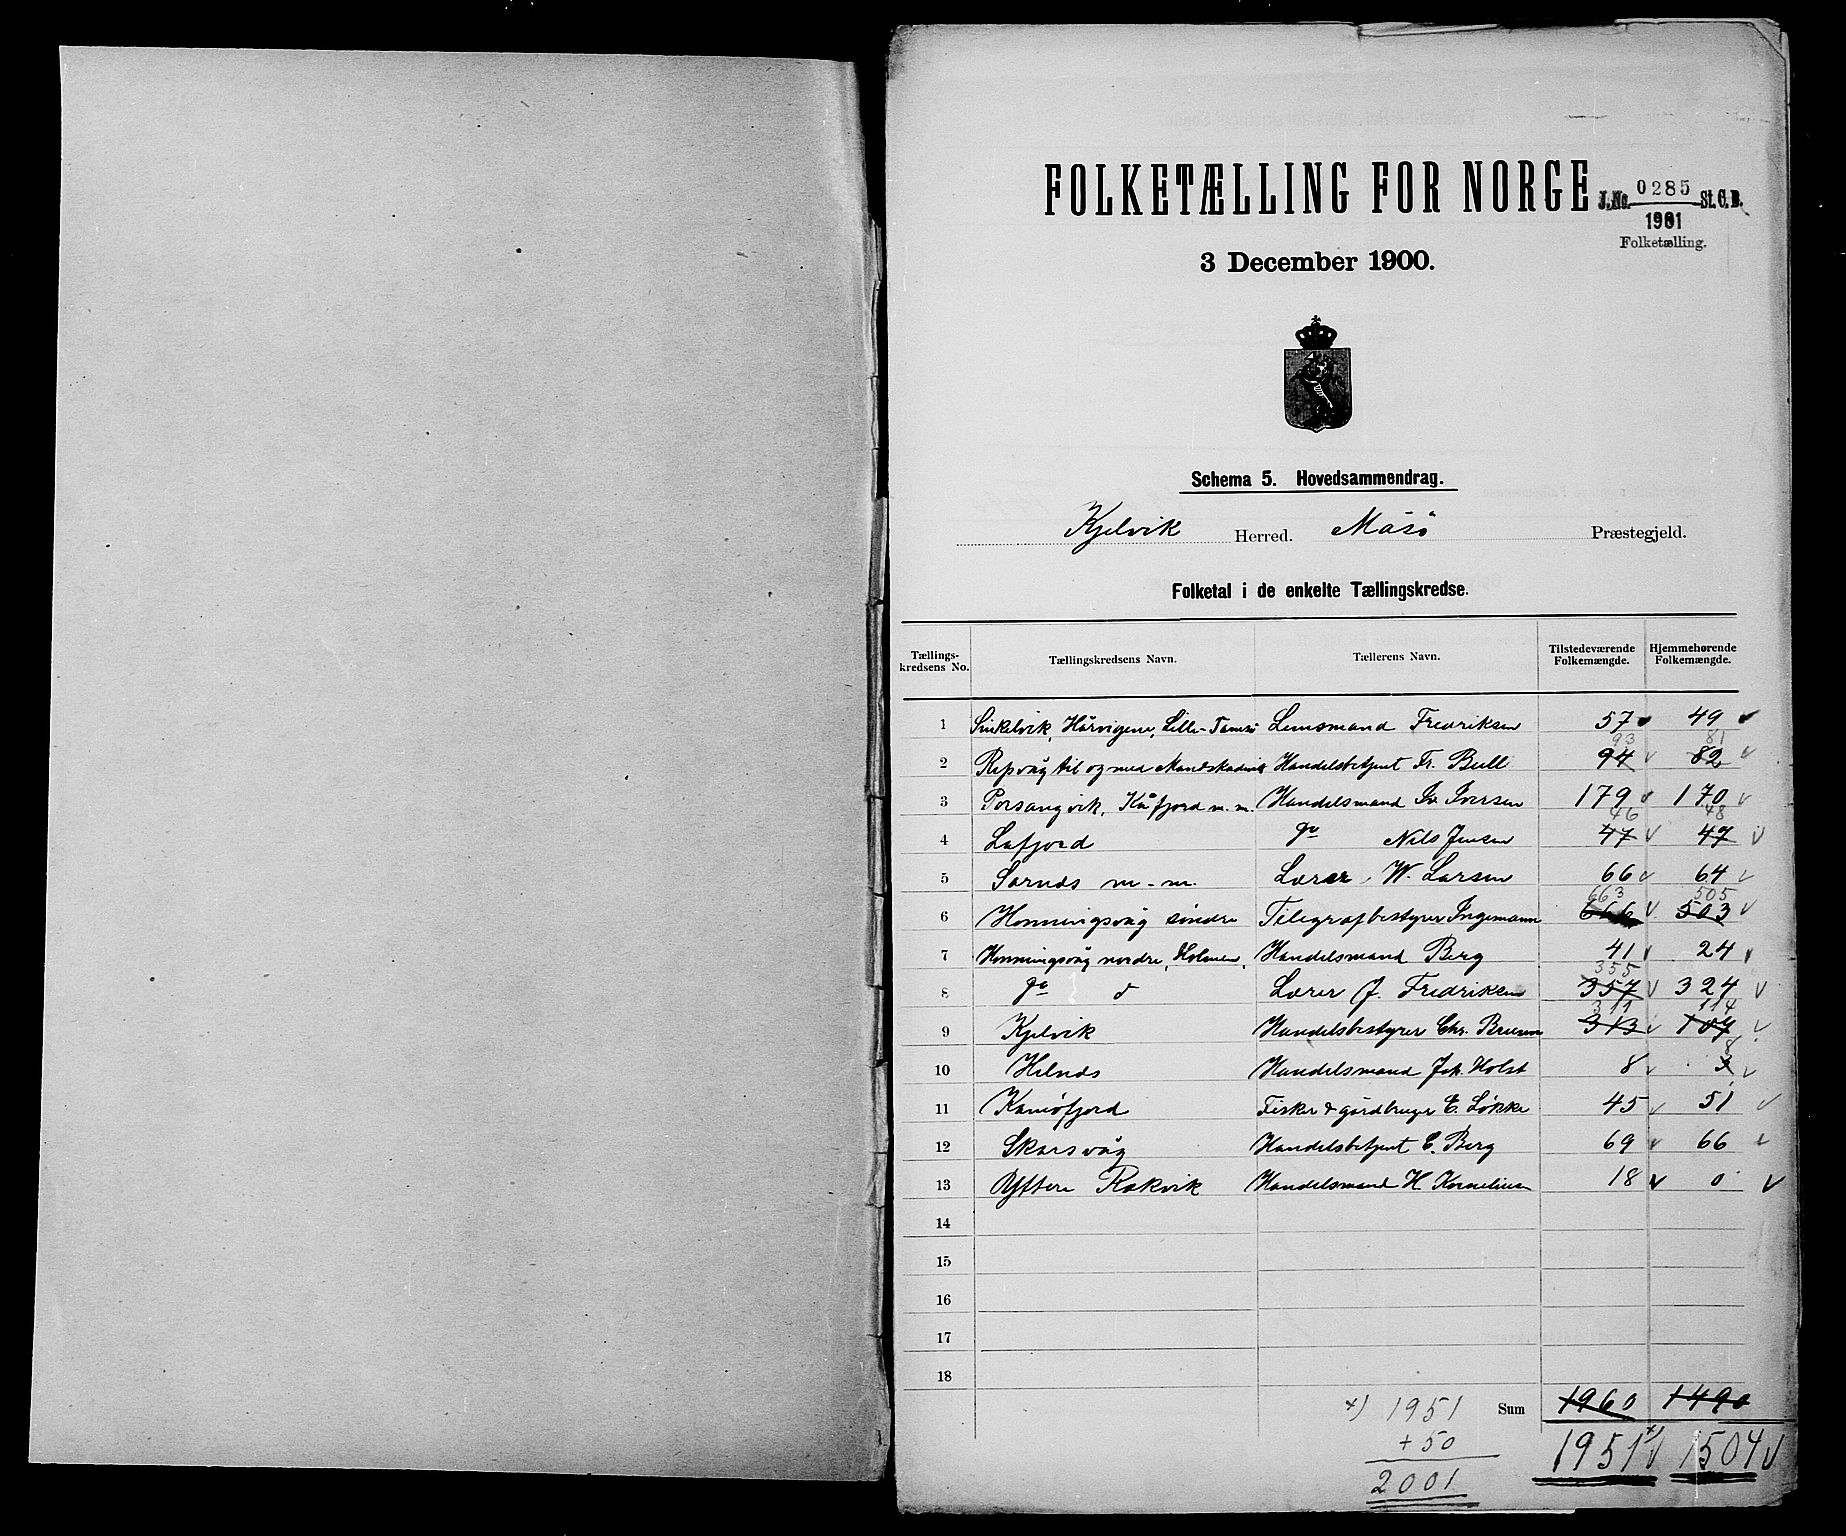 FOLKETÆLLING FOR NORGE
J.No. 0285 St.C.B.
1901
Folketælling.
3 December 1900.
Schema 5. Hovedsammendrag.
Kjelvik Herred. Måsö Præstegjeld.
Folketal i de enkelte Tællingskredse.
Tællings-kredsens No. Tællingskredsens Navn. Tællerens Navn. Tilstedeværende Folkemængde. Hjemmehørende Folkemængde.
1 Hårvigene, Lille-Tamsö Lensmand Fredriksen 57 49
93 81
2 Repvåg til og med Handelsbetjent Fr. Bull 94 82
3 Porsangvik, Kåfjord m.m. Handelsmand Iv Iversen 179 170
46 48
4 Lafjord do Nils Jensen 47 47
5 Sarnæs m.m. Lærer W. Larsen 66 64
663 505
6 Honningsvåg söndre Telegrafbestyrer Ingemann 666 503
7 Honningsvåg nordre, Holmen, Handelsmand Berg 41 24
355
8 do d Lærer J. Fredriksen 357 324
311 114
9 Kjelvik Handelsbestyrer Chr. Bruun 313 107
8
10 Helnæs Handelsmand Joh. Holst 8 3
11 Kamöfjord Fisker & gårdbruger E. Løkke 45 51
12 Skarsvåg Handelsbetjent E. Berg 69 66
13 Yttere Risvik Handelsmand H Kornelius 18 0
14
15
16
17
18
x) 1951 Sum 1960 1490
+ 50 1951 x) 1504
2001